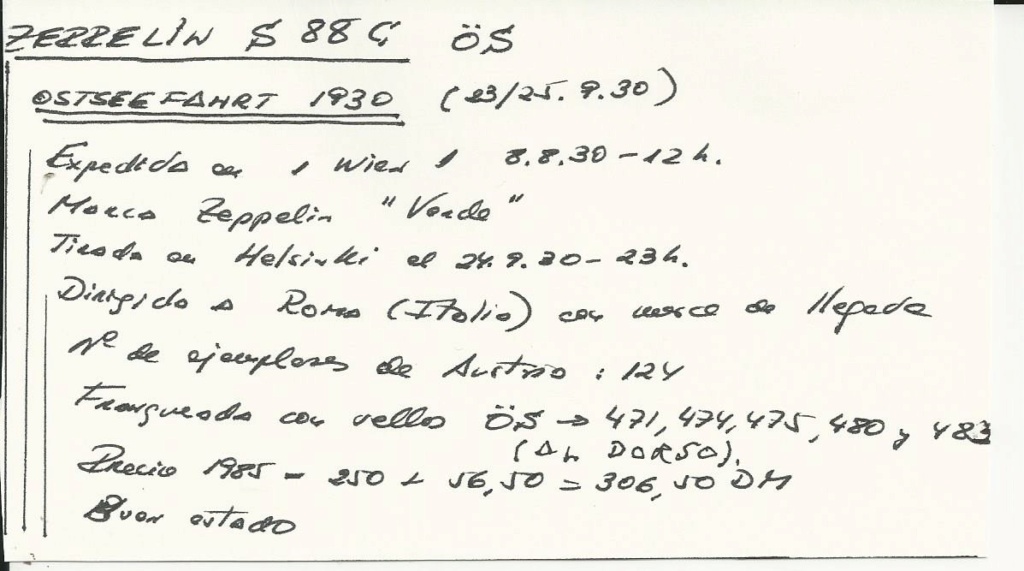 ZEPPELIN S 88 G ÖS
OSTSEEFAHRT 1930 (23/25.9.30)
Expedida en 1 Wien 1 8.8.30-12 h.
Marca Zeppelin "Verde"
Tirada en Helsinki el 24.9.30-23h.
Dirigida a Roma (Italia) con marca de llegada
Nº de ejemplares de Austria : 124
Franqueada con sellos ÖS → 471, 474, 475, 480 y 483
(AL DORSO).
Precio 1985 = 250 + 56,50 = 306,50 DM
Buen estado